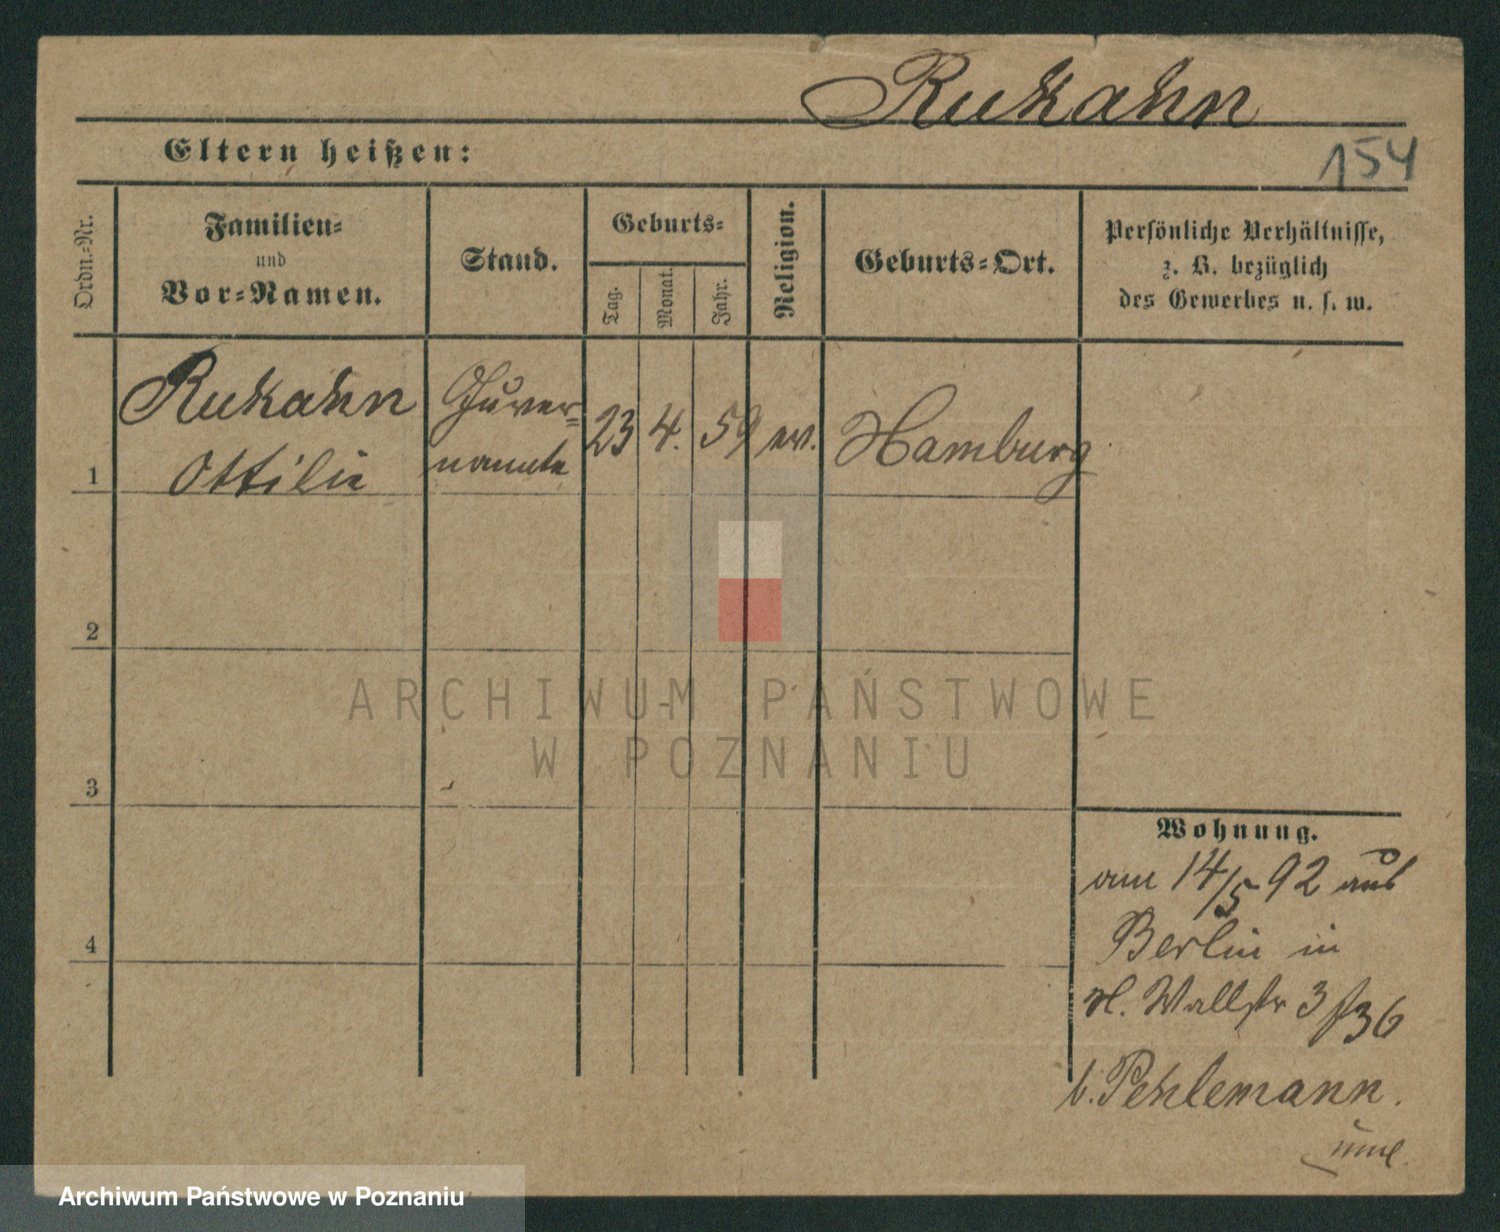 Rukahn
Eltern heißen:
154
Ordn.-Nr.
Familien-
und
Vor-Namen.
Stand.
Geburts-
Tag.
Monat.
Jahr.
Religion.
Geburts-Ort.
Persönliche Verhältnisse,
z. B. bezüglich
des Gewerbes u. s. w.
1
Rukahn
Ottilie
Guver-
nannte
23
4.
59
ev.
Hamburg
2
3
4
ARCHIWUM PAŃSTWOWE
W POZNANIU
Wohnung.
am 14/5 92 aus
Berlin in
Wallstr 3 /36
b. Pehlemann.
Archiwum Państwowe w Poznaniu